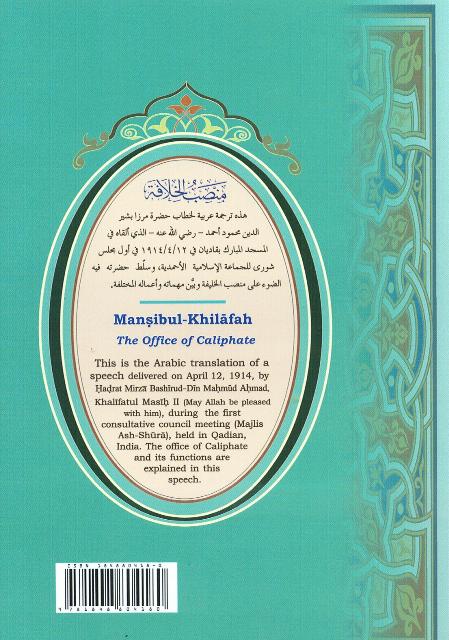 منصب الخلافة
هذه ترجمة عربية لخطاب حضرة مرزا بشير
الدين محمود أحمد – رضي الله عنه – الذي ألقاه في
المسجد المبارك بقاديان في ١٩١٤/٤/١٢ في أول مجلس
شورى للجماعة الإسلامية الأحمدية، وسلّط حضرته فيه
الضوء على منصب الخليفة وبيَّن مهماته وأعماله المختلفة.
Manṣibul-Khilāfah
The Office of Caliphate
This is the Arabic translation of a
speech delivered on April 12, 1914, by
Ḥaḍrat Mirzā Bashīrud-Dīn Maḥmūd Aḥmad,
Khalīfatul Masīḥ II (May Allah be pleased
with him), during the first
consultative council meeting (Majlis
Ash-Shūrā), held in Qadian,
India. The office of Caliphate
and its functions are
explained in this
speech.
ISBN 184880416-0